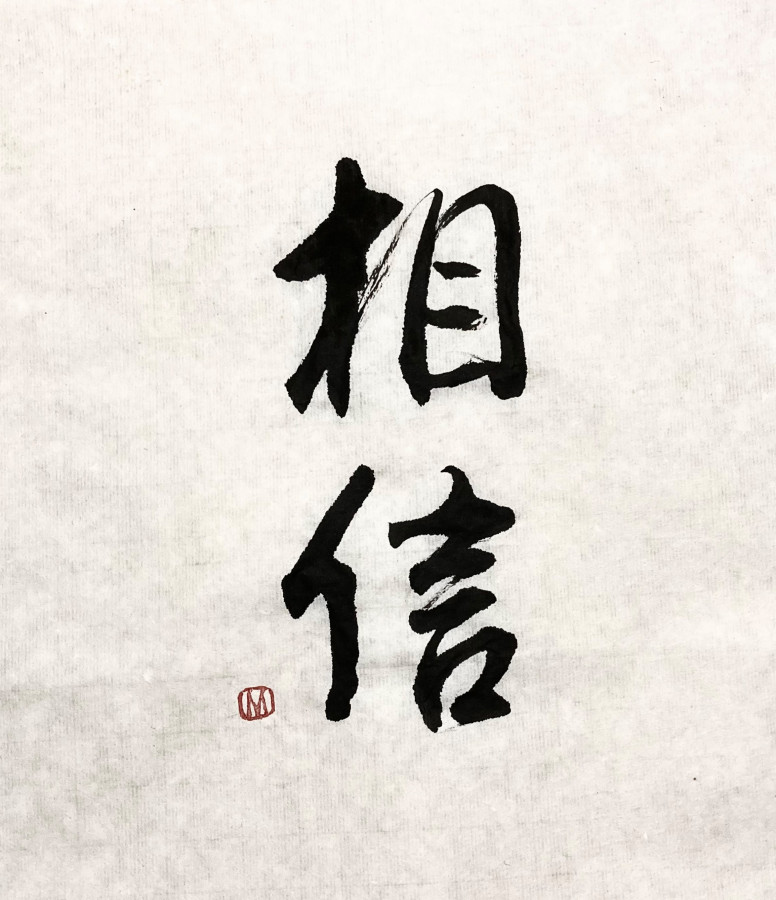 相
信
M